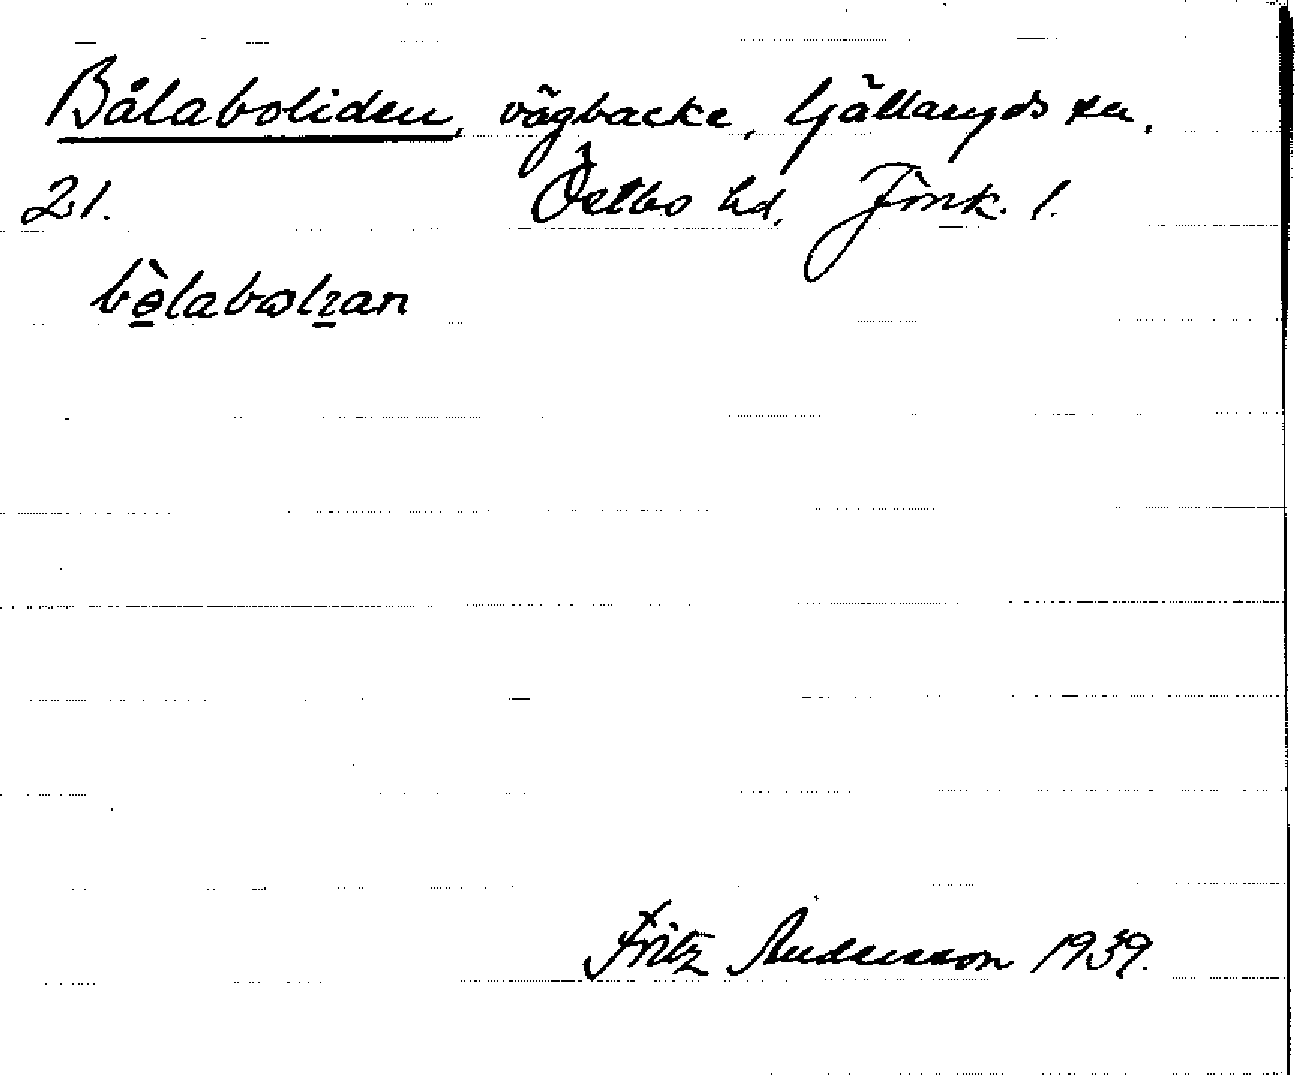 Bålaboliden, vägbacke, Gällaryds sn.
21. Östbo hd. Jönk. l.
Fritz Andersson 1939.